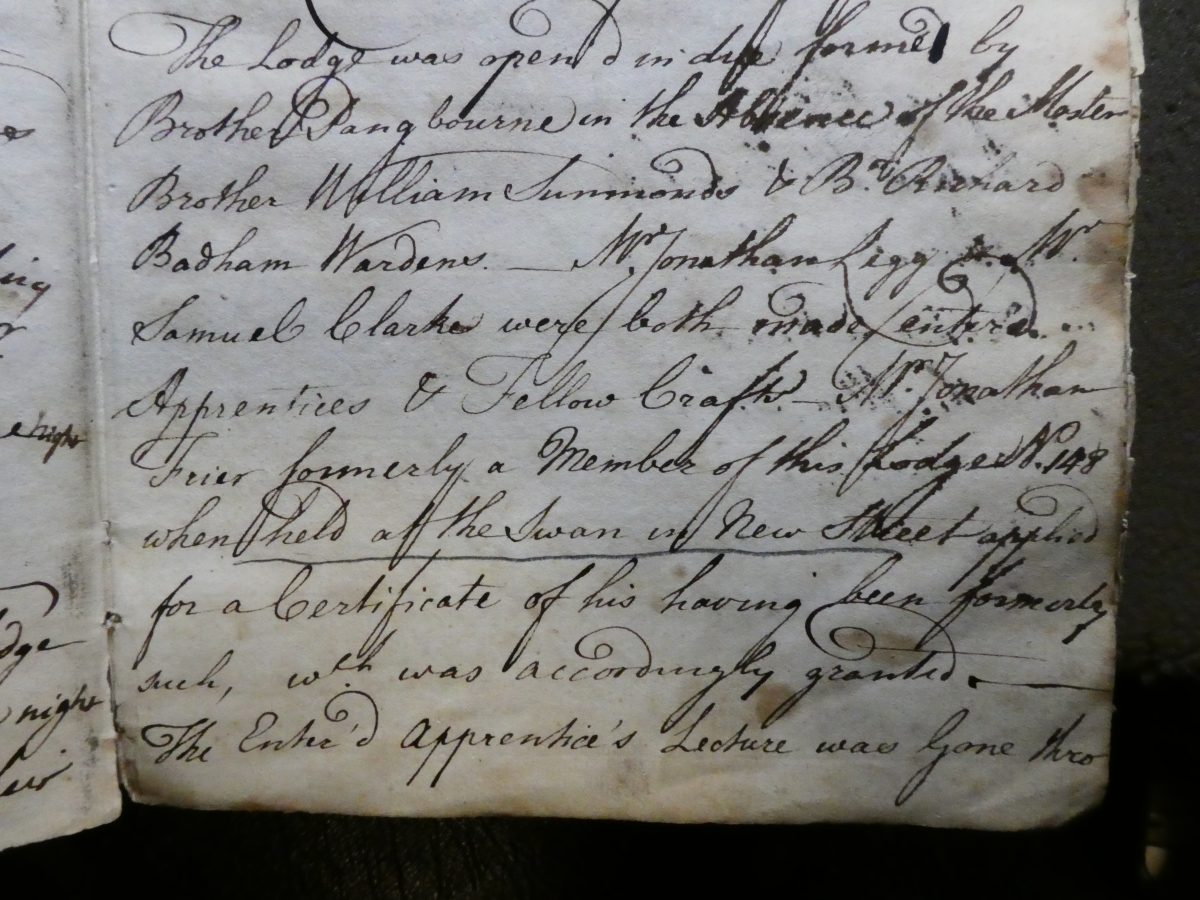 The Lodge was open'd in due forme by
Brother Pangbourne in the Absence of the Master
Brother William Summonds & Br. Richard
Badham Wardens. — Mr. Jonathan Ligg & Mr.
Samuel Clarke were both made enter'd
Apprentices & Fellow Crafts — Mr. Jonathan
Frier formerly a Member of this Lodge No. 148
when held at the Swan in New Street applied
for a Certificate of his having been formerly
such, wch. was accordingly granted. —
The Enter'd Apprentice's Lecture was Gone thro
night
dge
night